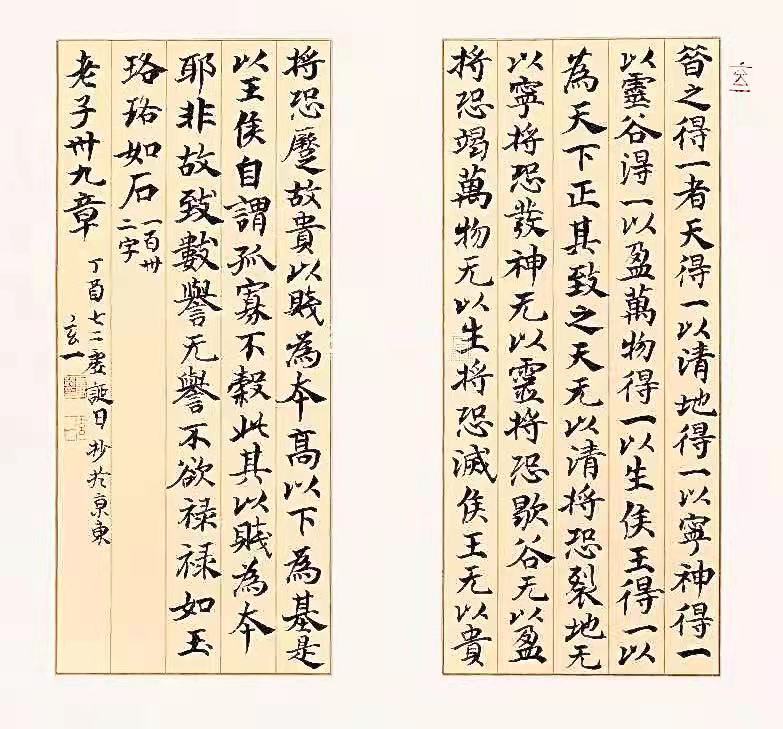 昔之得一者天得一以清地得一以寧神得一
以靈谷得一以盈萬物得一以生侯王得一以
為天下正其致之天无以清將恐裂地无
以寧將恐發神无以靈將恐歇谷无以盈
將恐竭萬物无以生將恐滅侯王无以貴
將恐蹷故貴以賤為本高以下為基是
以王侯自謂孤寡不穀此其以賤為本
耶非故致數譽无譽不欲禄禄如玉
珞珞如石
一百卅
二字
老子卅九章
丁酉七二虚誕日抄於京東
玄一